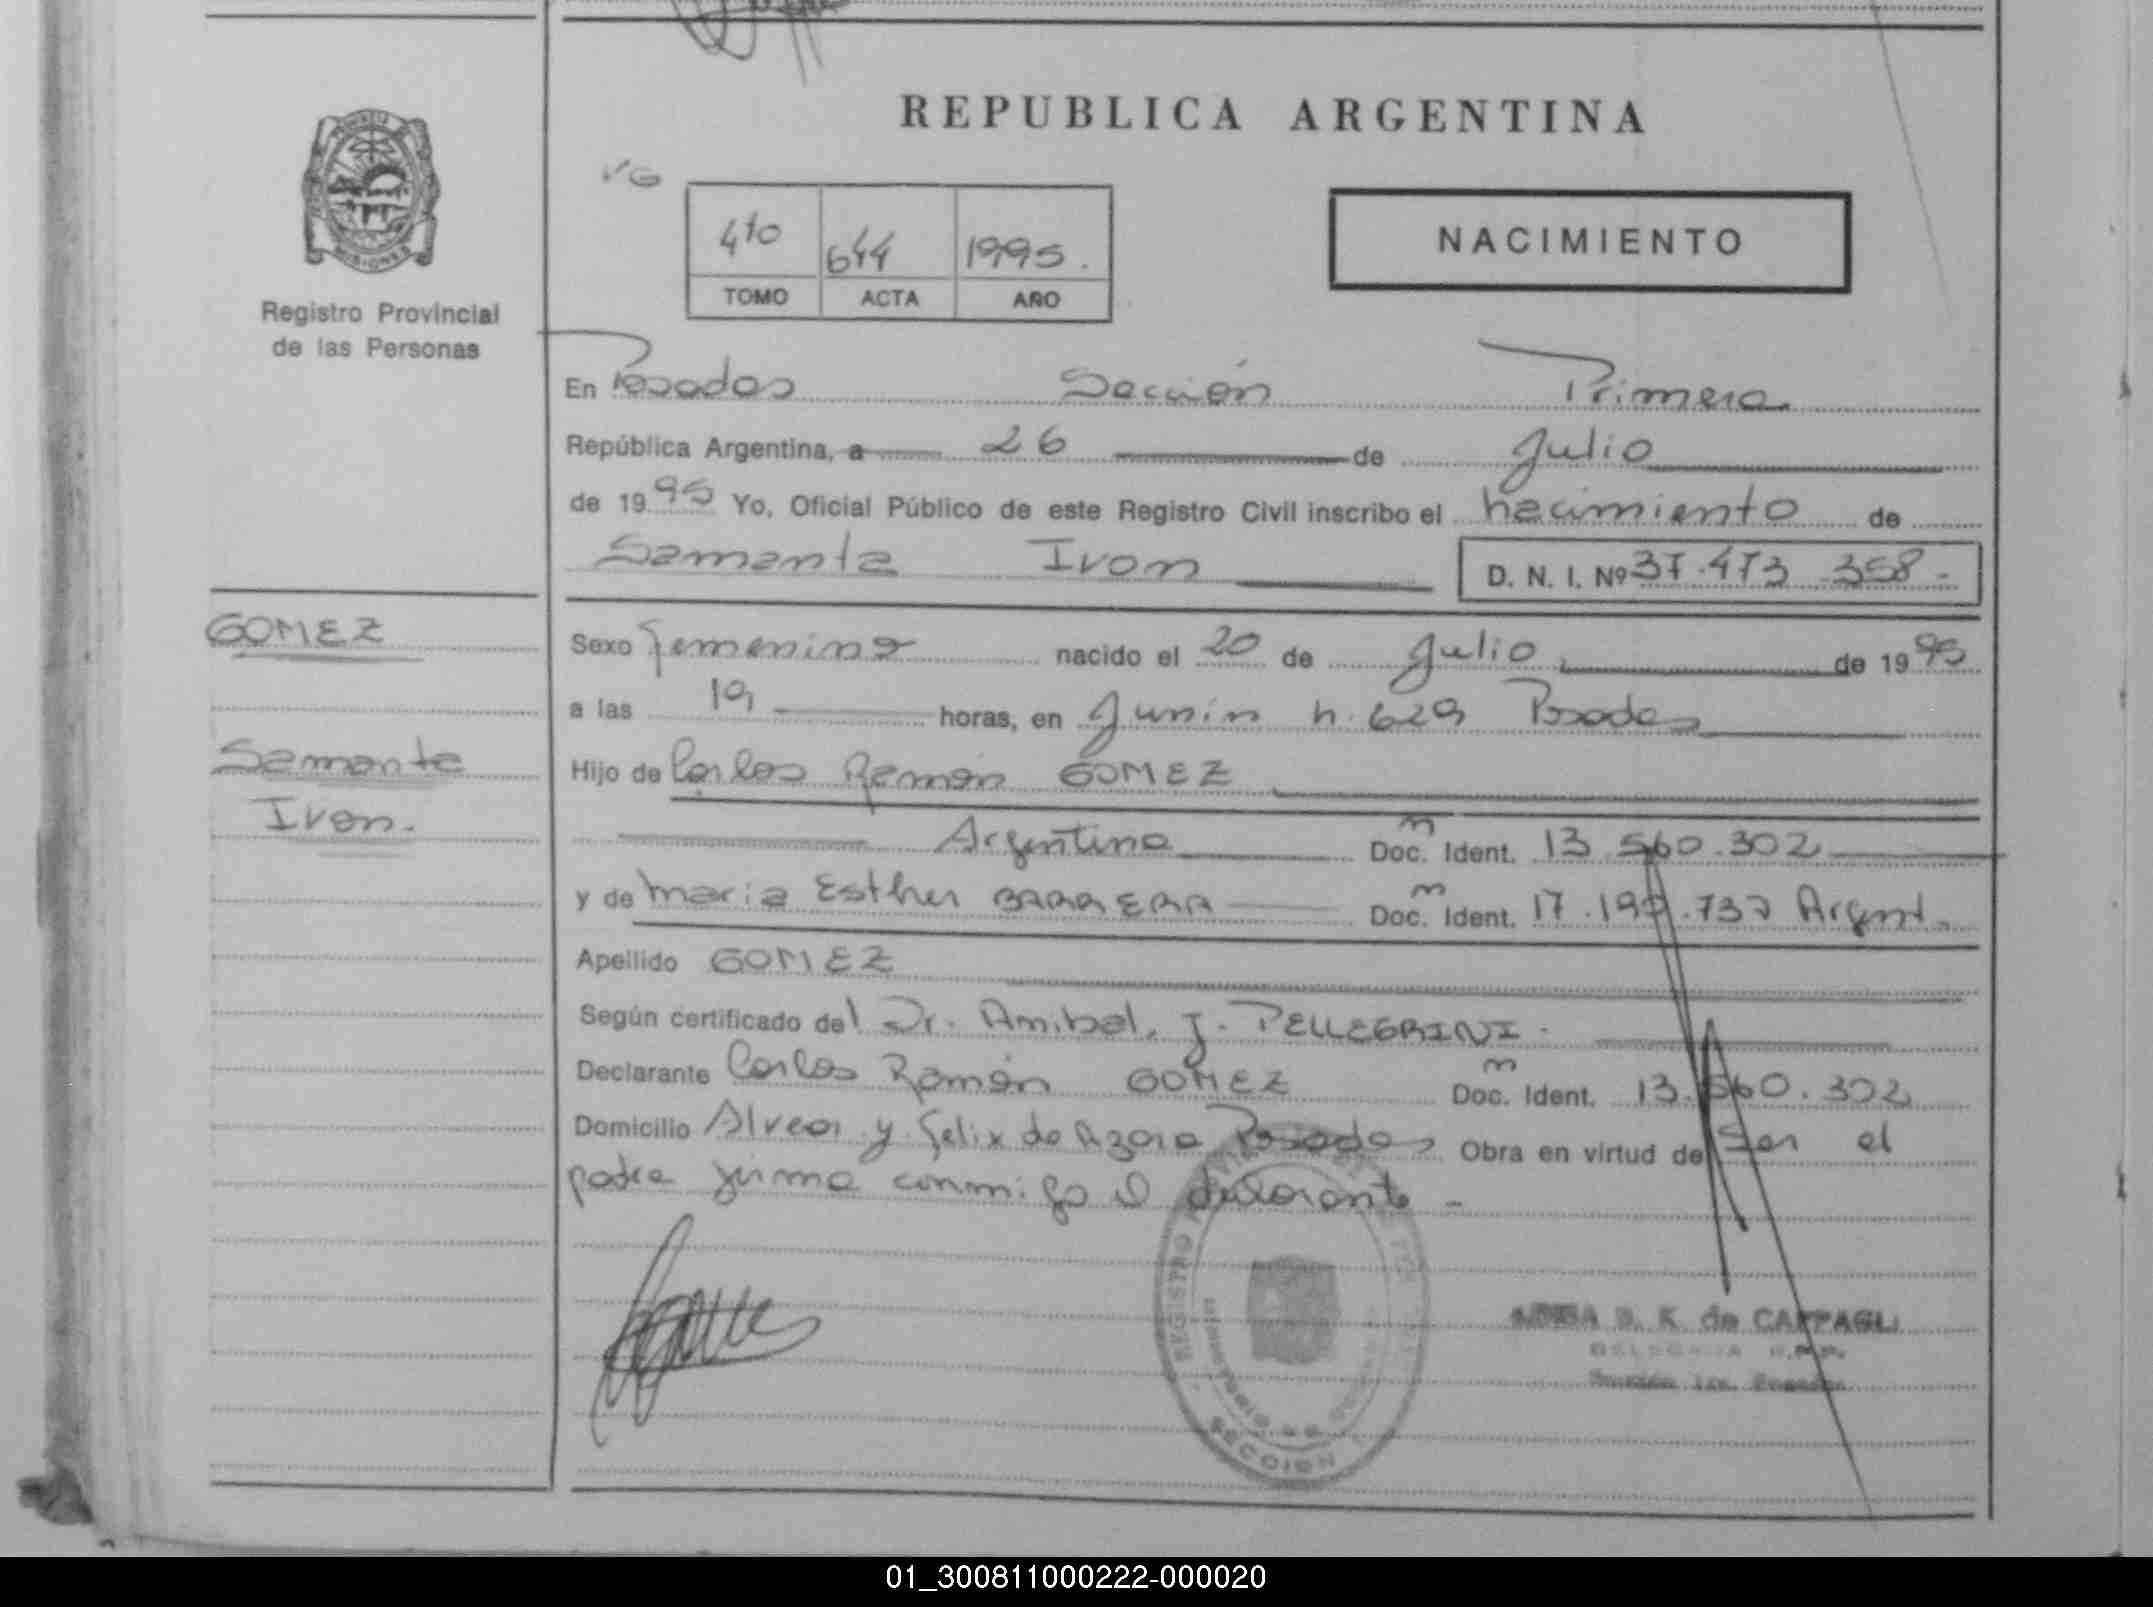 REPUBLICA ARGENTINA
VG
4to 644 1995.
TOMO ACTA AÑO
NACIMIENTO
MISIONES
Registro Provincial
de las Personas
En Posadas Sección Primera
República Argentina, a 26 de Julio
de 1995 Yo, Oficial Público de este Registro Civil inscribo el nacimiento de
Samanta Ivon D. N. I. Nº 37.473 358-
GOMEZ
Samanta
Ivon.
Sexo femenino nacido el 20 de Julio de 1995
a las 19 horas, en Junin n. 629 Posadas
Hijo de Carlos Ramón GOMEZ
Argentino Doc. Ident. 13.560.302
y de Maria Esther BARRERA Doc. Ident. 17.199.737 Argent.
Apellido GOMEZ
Según certificado del Dr. Anibal, J. PELLEGRINI.
Declarante Carlos Ramón GOMEZ Doc. Ident. 13.560.302
Domicilio Alvear y Felix de Azara Posadas Obra en virtud de Ser el
padre firma conmigo el declarante -
B. K. de CAPPAGLI
SECCION
01_300811000222-000020